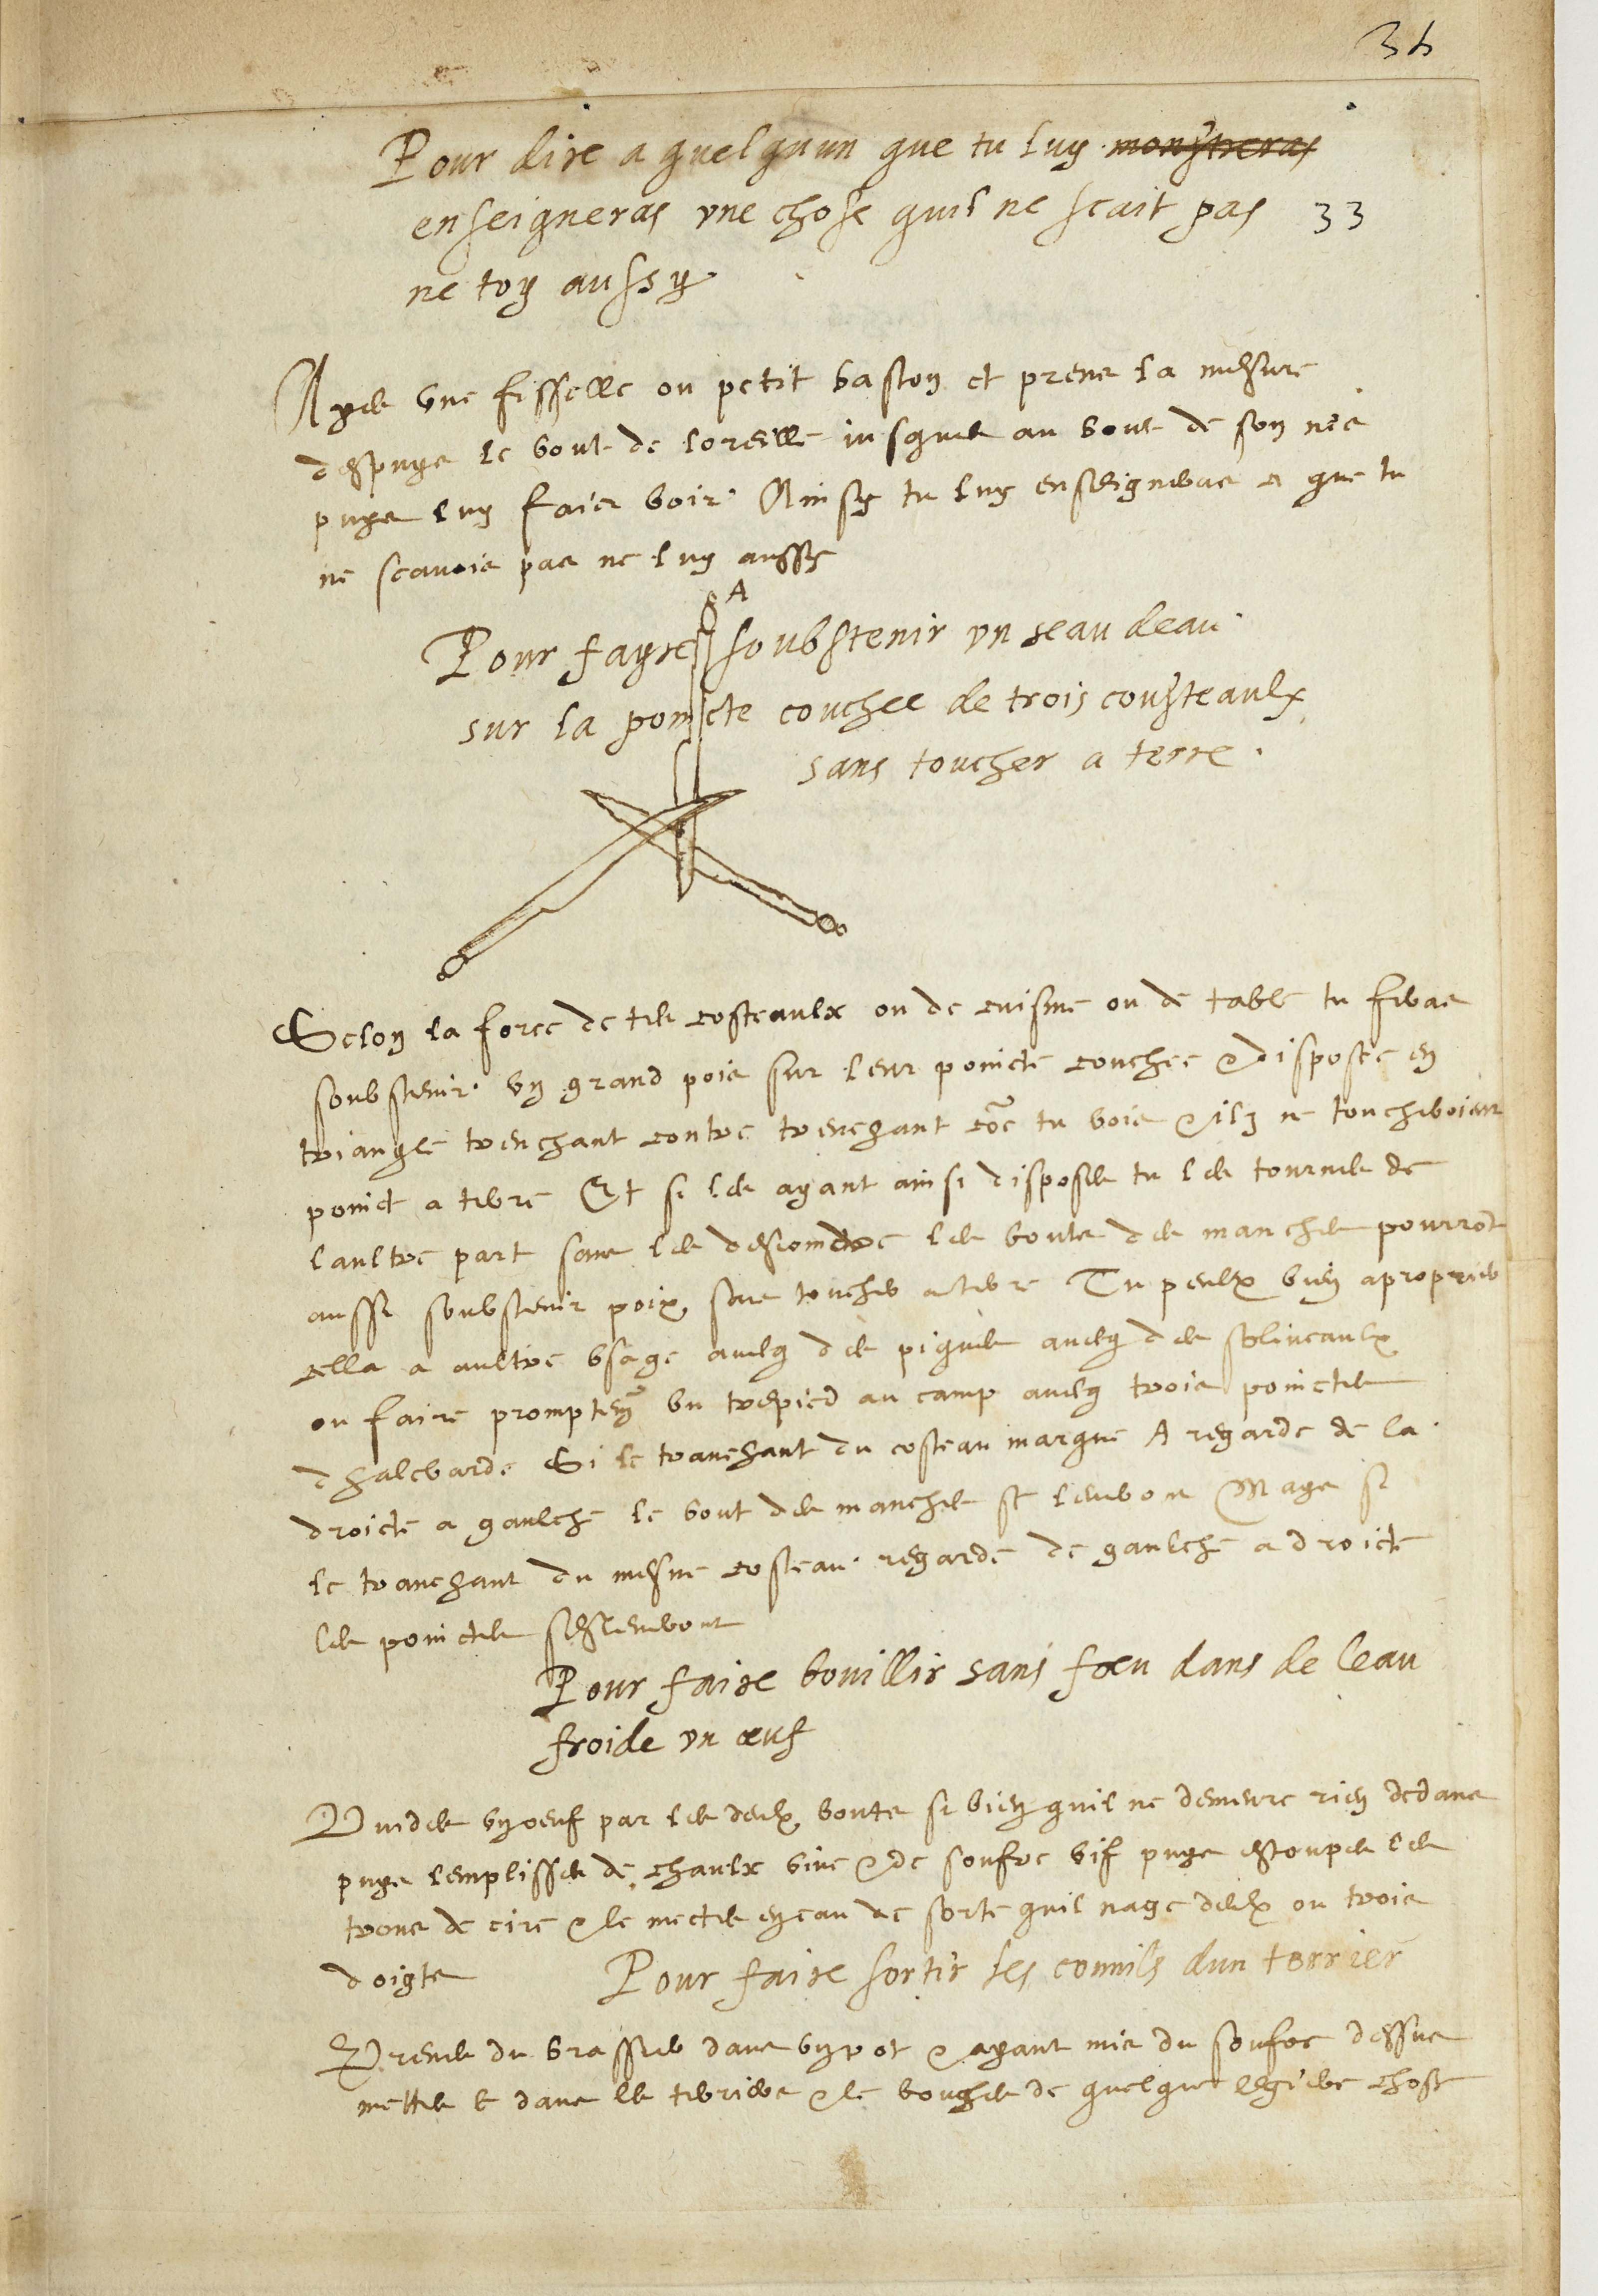 34
Pour dire a quelquun que tu luy monstreras
enseigneras une chose quil ne scait pas 33
ne toy aussy
Ayes une fisselle ou petit baston et prens la mesure
despuys le bout de loreille jusques au bout de son nés
puys luy fais voir Ainsy tu luy enseigneras ce que tu
ne scavois pas ne luy aussy
A
Pour fayre soubstenir un seau deau
sur la poincte couchee de trois cousteaulx
sans toucher a terre
Selon la force de tes costeaulx ou de cuisine ou de table tu feras
soubstenir un grand pois sur leur poincte couchee & disposee en
triangle trenchant contre trenchant coe tu vois & ilz ne toucheroient
poinct a terre Et si les ayant ainsi disposes tu les tournes de
laultre part sans les desjoindre les bouts des manches pourront
aussi soubstenir poix sans toucher a terre Tu peulx bien aproprier
cella a aultre usage avecq des pignes avecq des soliveaulx
ou faire promptem un trepied au camp avecq trois poinctes
dhalebarde Si le tranchant du costeau marque A regarde de la
droicte a gaulche le bout des manches se leveront Mays si
le tranchant du mesme costeau regarde de gaulche a droicte
les poinctes seslevevront
Pour faire bouillir sans foeu dans de leau
froide un œuf
Vuides un oeuf par les deulx bouts si bien quil ne demeure rien dedans
puys lemplisses de chaulx vive & de soufre vif puys estoupes les
trous de cire & le mectes en eau de sorte quil nage deulx ou trois
doigts Pour faire sortir les connils dun terrier
Prenes du brassier dans un pot & ayant mis du soufre dessus
mettes le dans les terriers & le bouches de quelque legiere chose